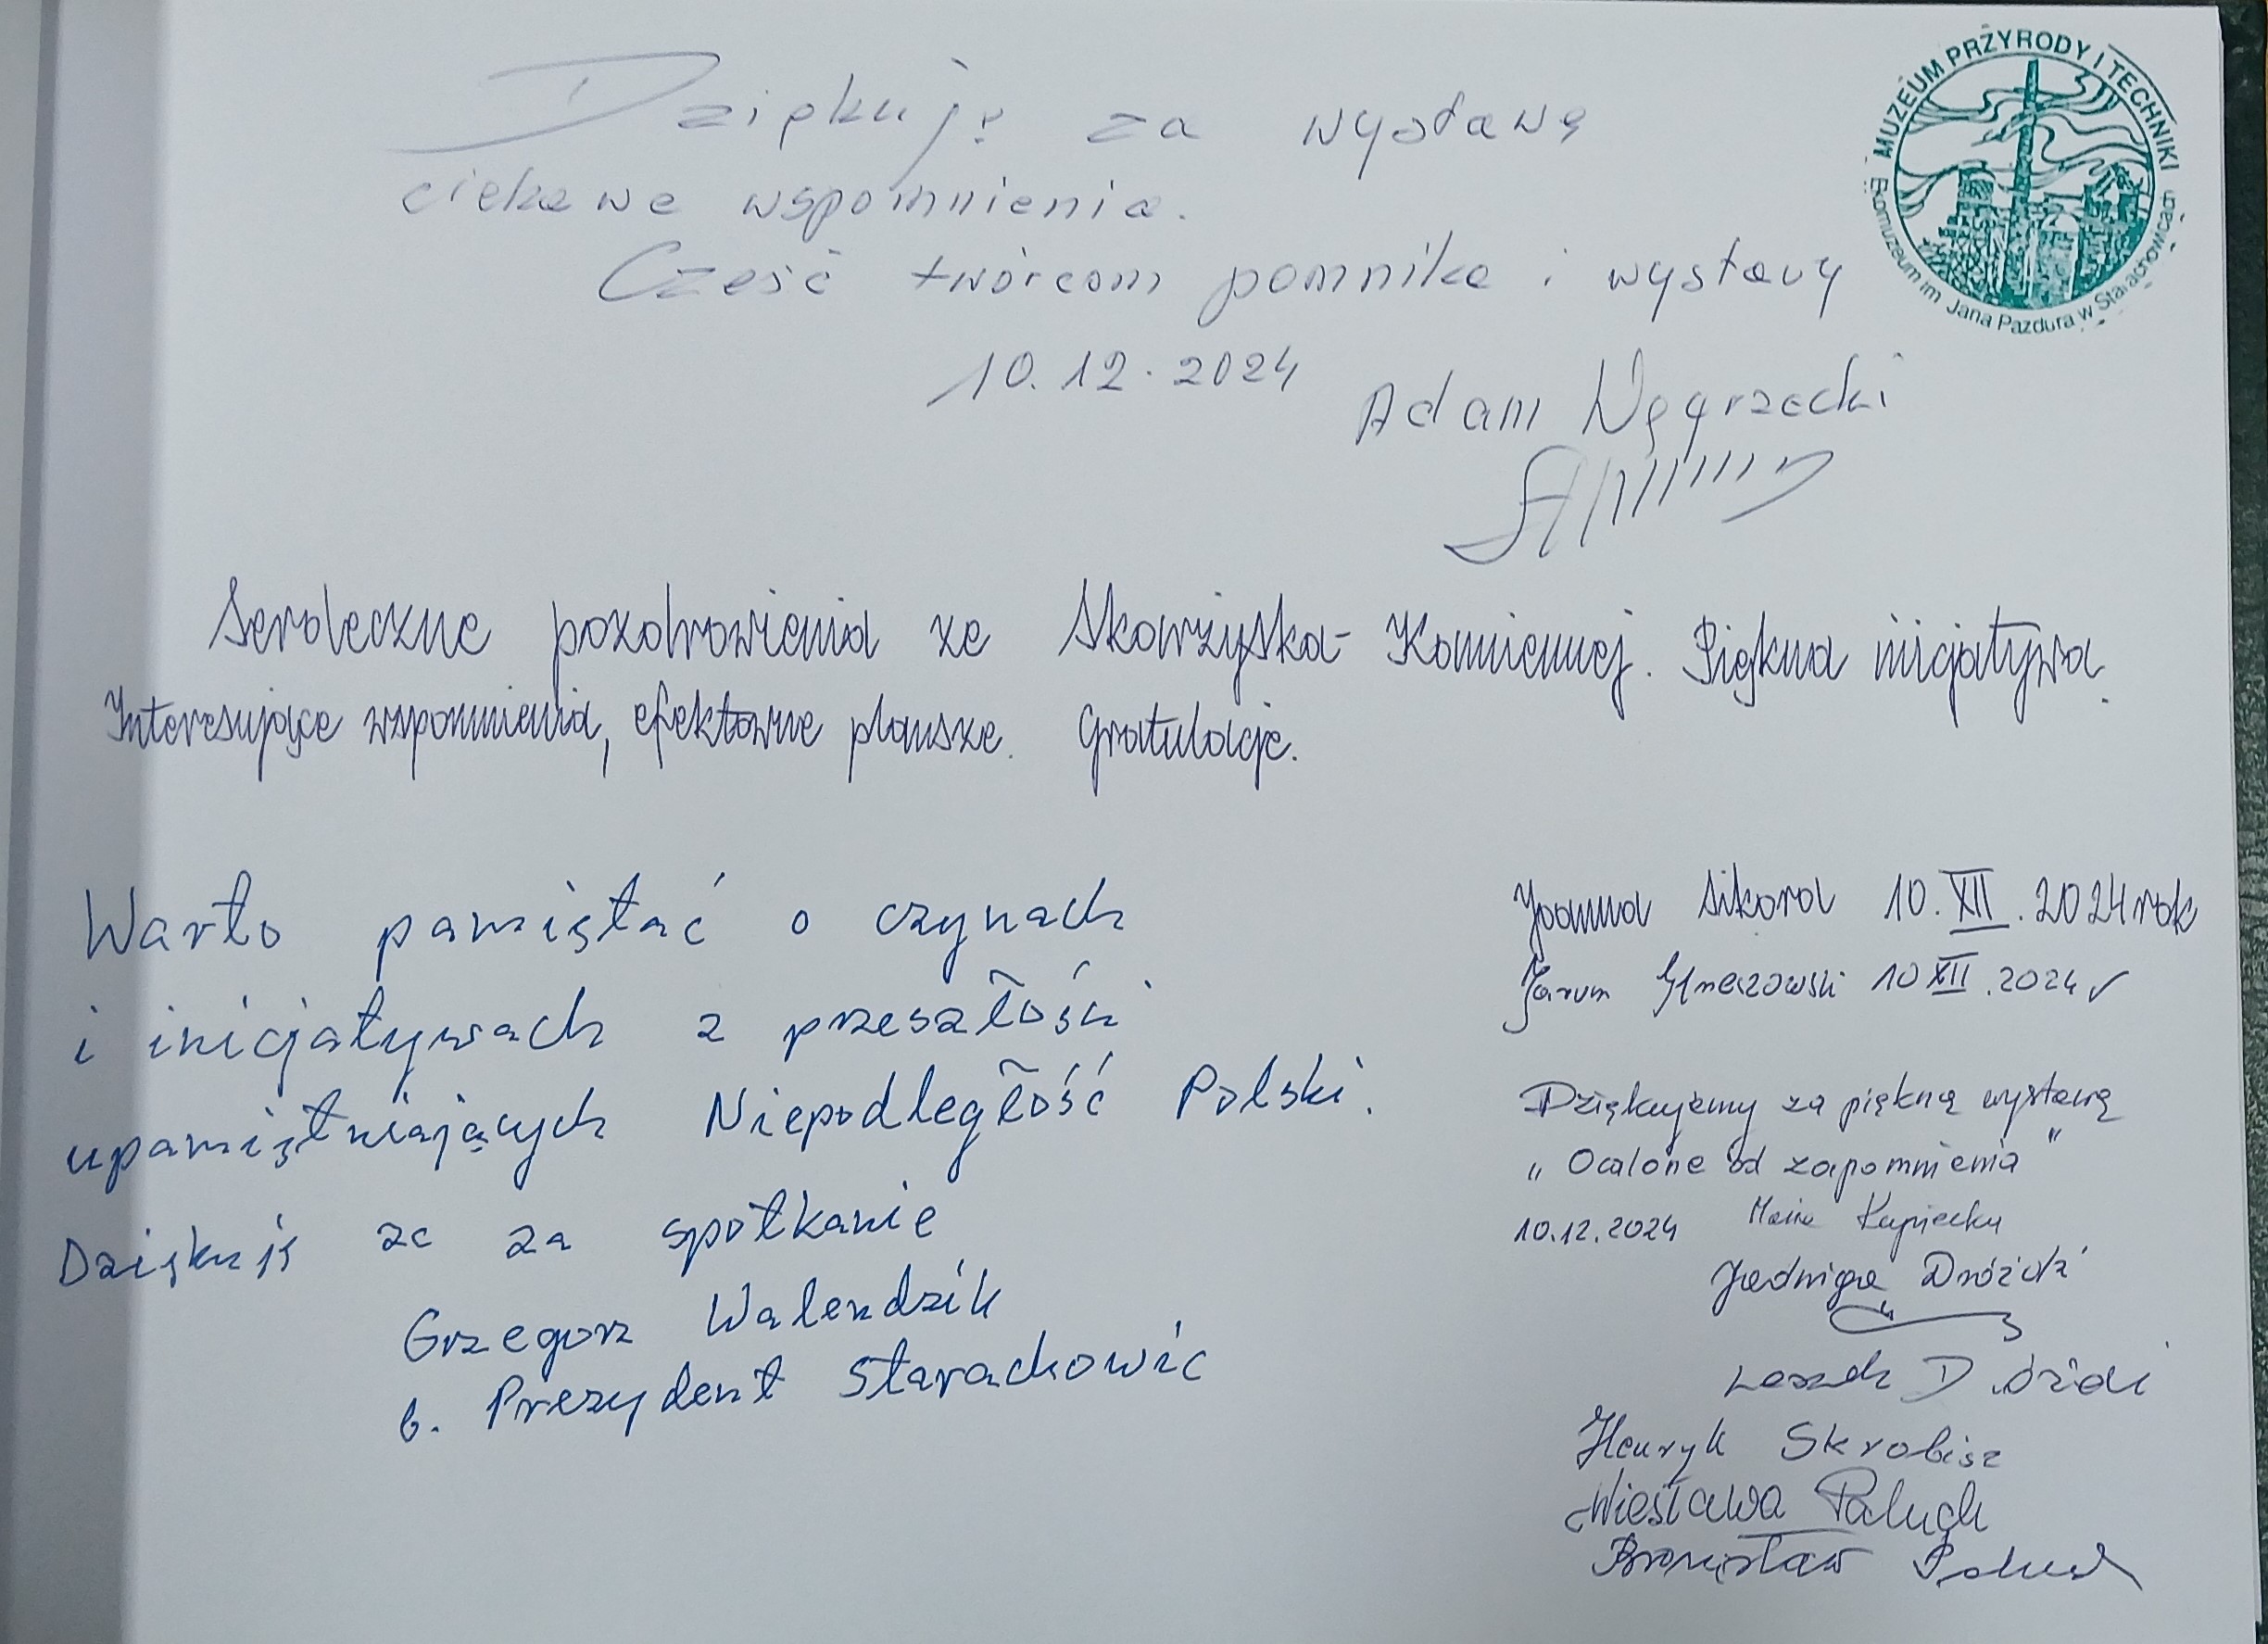 MUZEUM PRZYRODY I TECHNIKI
Ekomuzeum im. Jana Pazdura w Starachowicach
Dziękuję za wystawę
ciekawe wspomnienia.
Cześć twórcom pomnika i wystawy
10.12.2024
Adam Węgrzecki
Serdeczne pozdrowienia ze Skarżyska-Kamiennej. Piękna inicjatywa.
Interesujące wspomnienia, efektowne plansze. Gratulacje.
Joanna Sikora 10.XII.2024 rok
10 XII.2024
Warto pamiętać o czynach
i inicjatywach z przeszłości
upamiętniających Niepodległość Polski.
Dziękuję za za spotkanie
Grzegorz Walendzik
b. Prezydent Starachowic
Dziękujemy za piękną wystawę
„Ocalone od zapomnienia"
10.12.2024 Kupiecka
Jadwiga Dróżdż
Leszek
Henryk Skrobisz
Wiesława Paluch
Bronisław Paluch